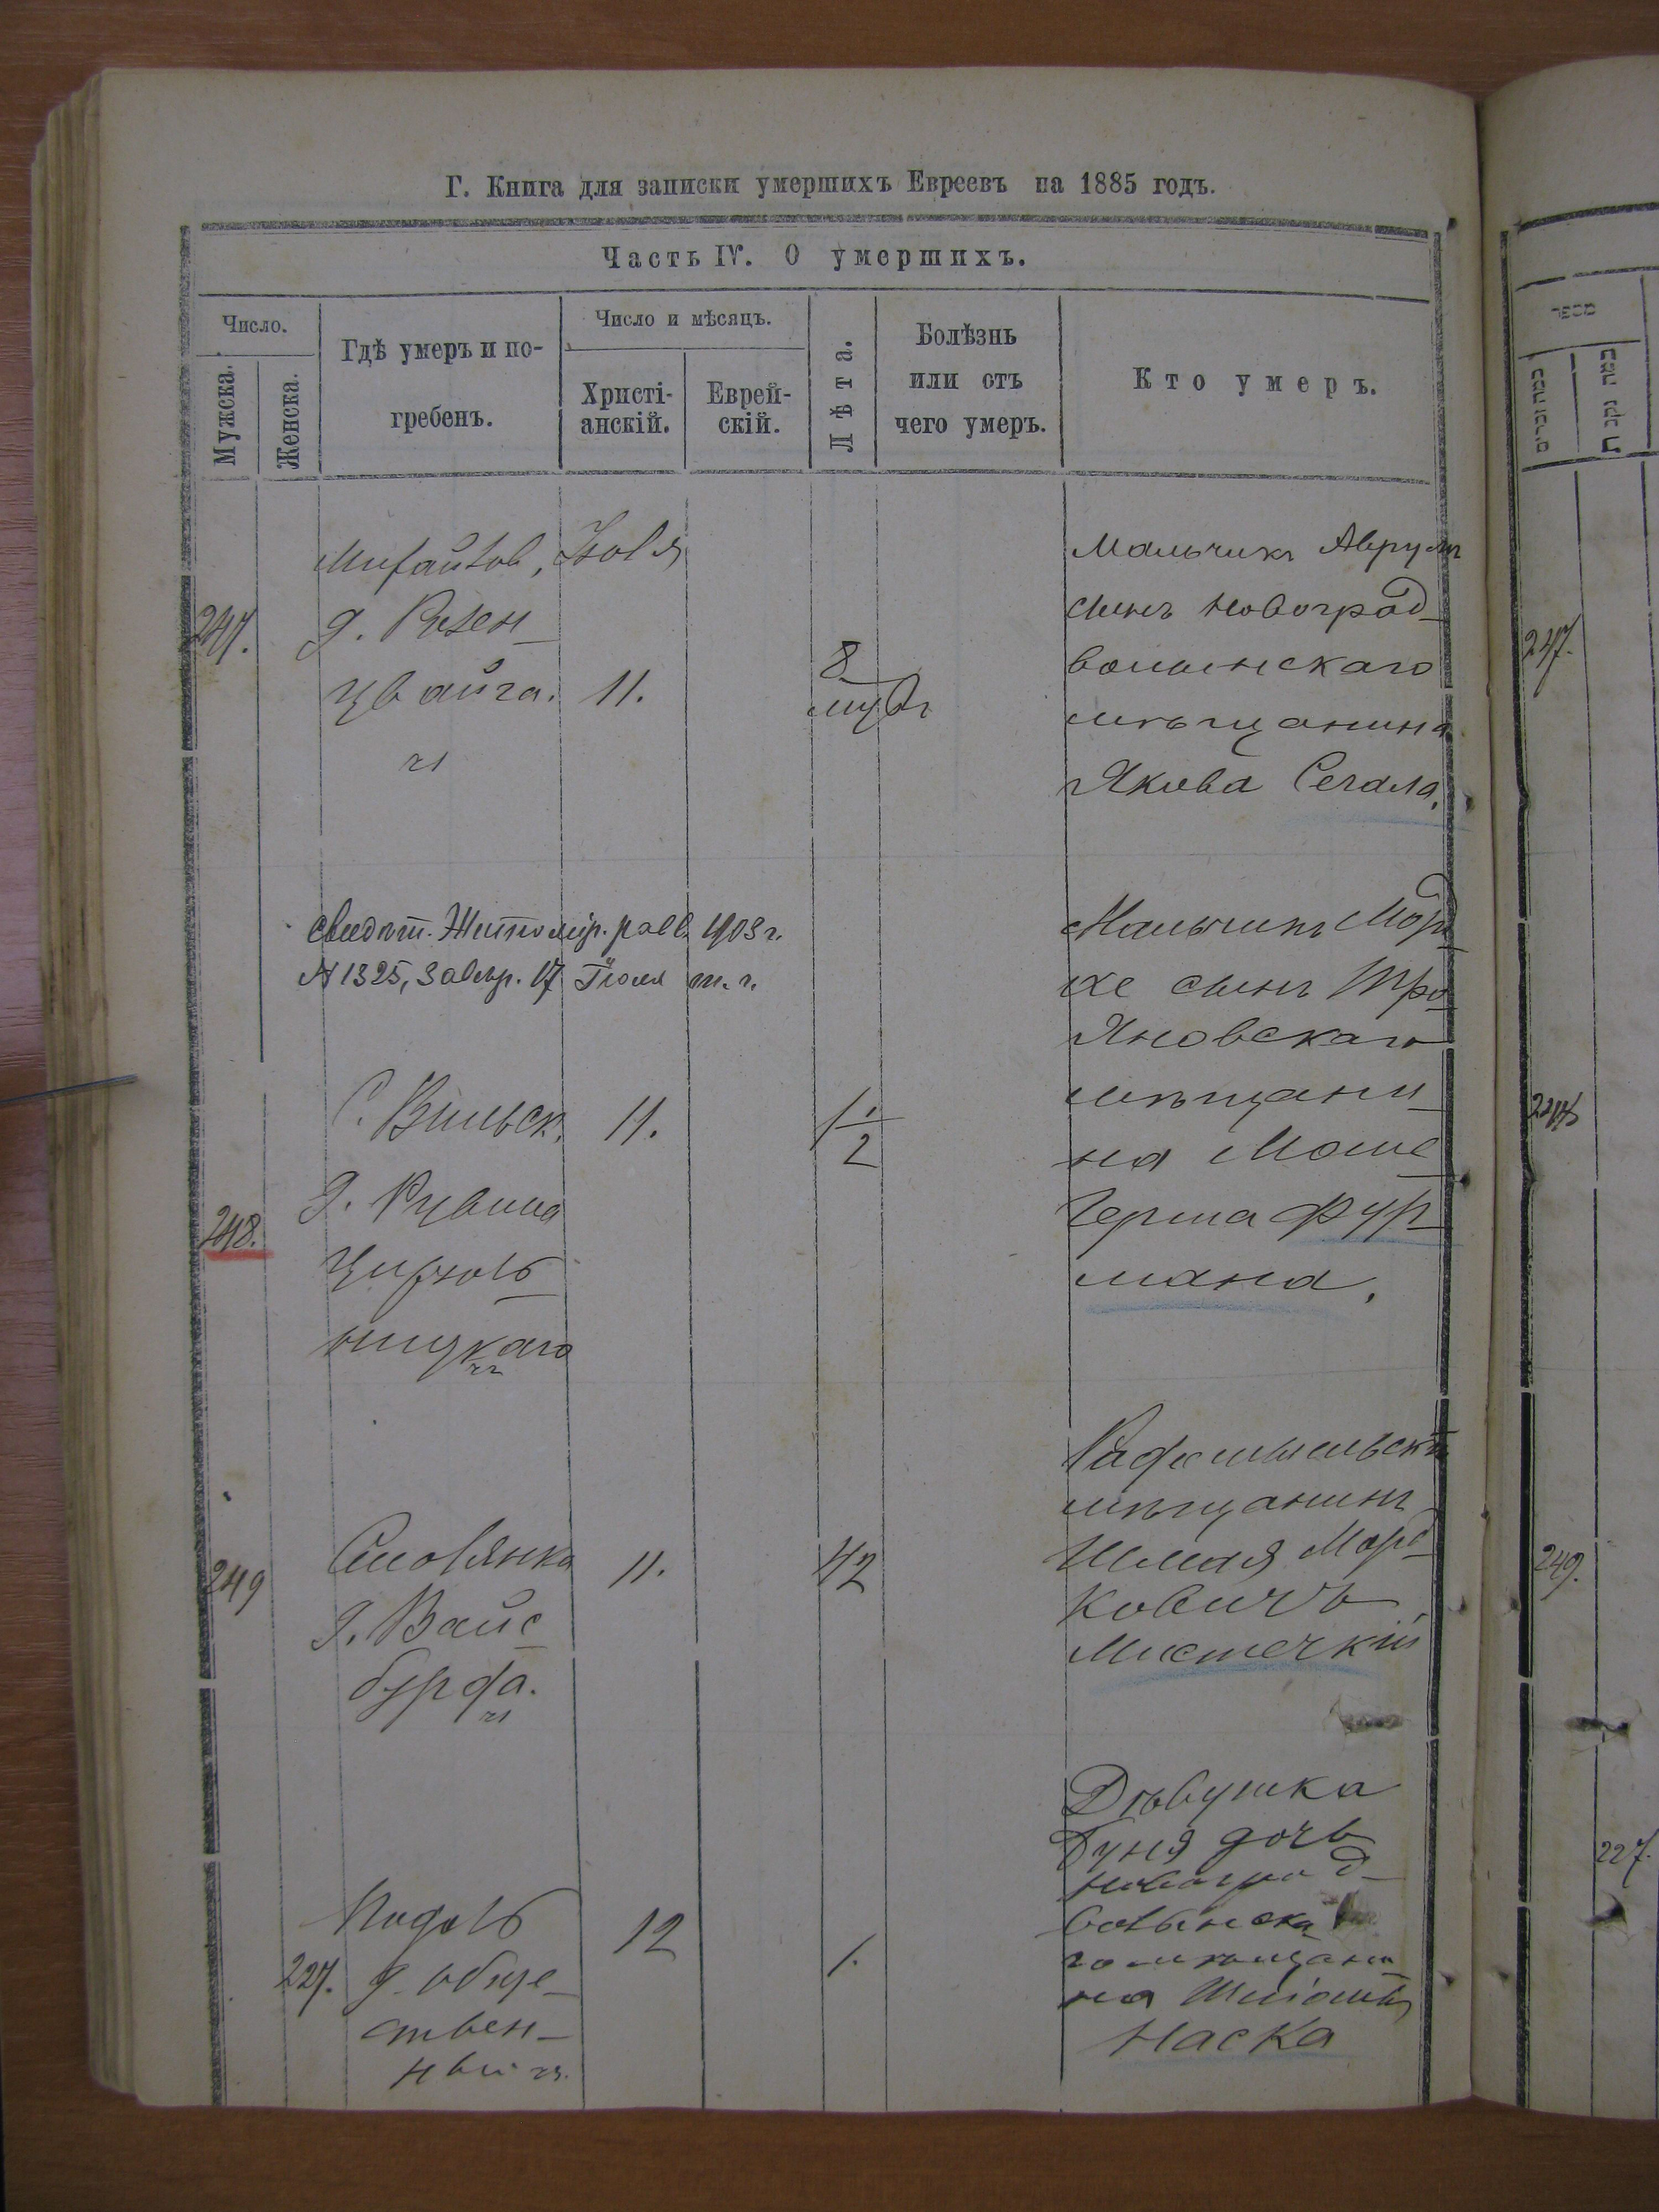 Г. Книга для записки умершихъ Евреевъ на 1885 годъ.
Часть IV. О умершихъ.
Число.
Мужска.
Женска.
Гдѣ умеръ и по-
гребенъ.
Число и мѣсяцъ.
Христі-
анскій.
Еврей-
скій.
Лѣта.
Болѣзнь
или отъ
чего умеръ.
Кто умеръ.
247.
д. Розен
цвайга.
Іюля
11.
8
Мальчикъ Аврумъ
сынъ Новоград
волынскаго
мѣщанина
Якова Сегала.
247.
свидѣт. Житомір. равв. 1903 г.
№ 1325, завѣр. 17 Іюля т. г.
248.
С. Вильск.
д. Рувина
11.
1 1/2
Мальчикъ Морд
хе сынъ Тро
яновскаго
мѣщани
на Моше
Герша Фур
мана.
248
249
Смолянка
д. Вайс
бурда.
11.
42
Радомысльскій
мѣщанинъ
Шмая Морд
ковичъ
Мистечкій
249.
227.
Подолъ
д. обще
ствен
ный
12
1.
Дѣвушка
Буня дочь
Новоград
волынска
го мѣщани
на
Наска
227.